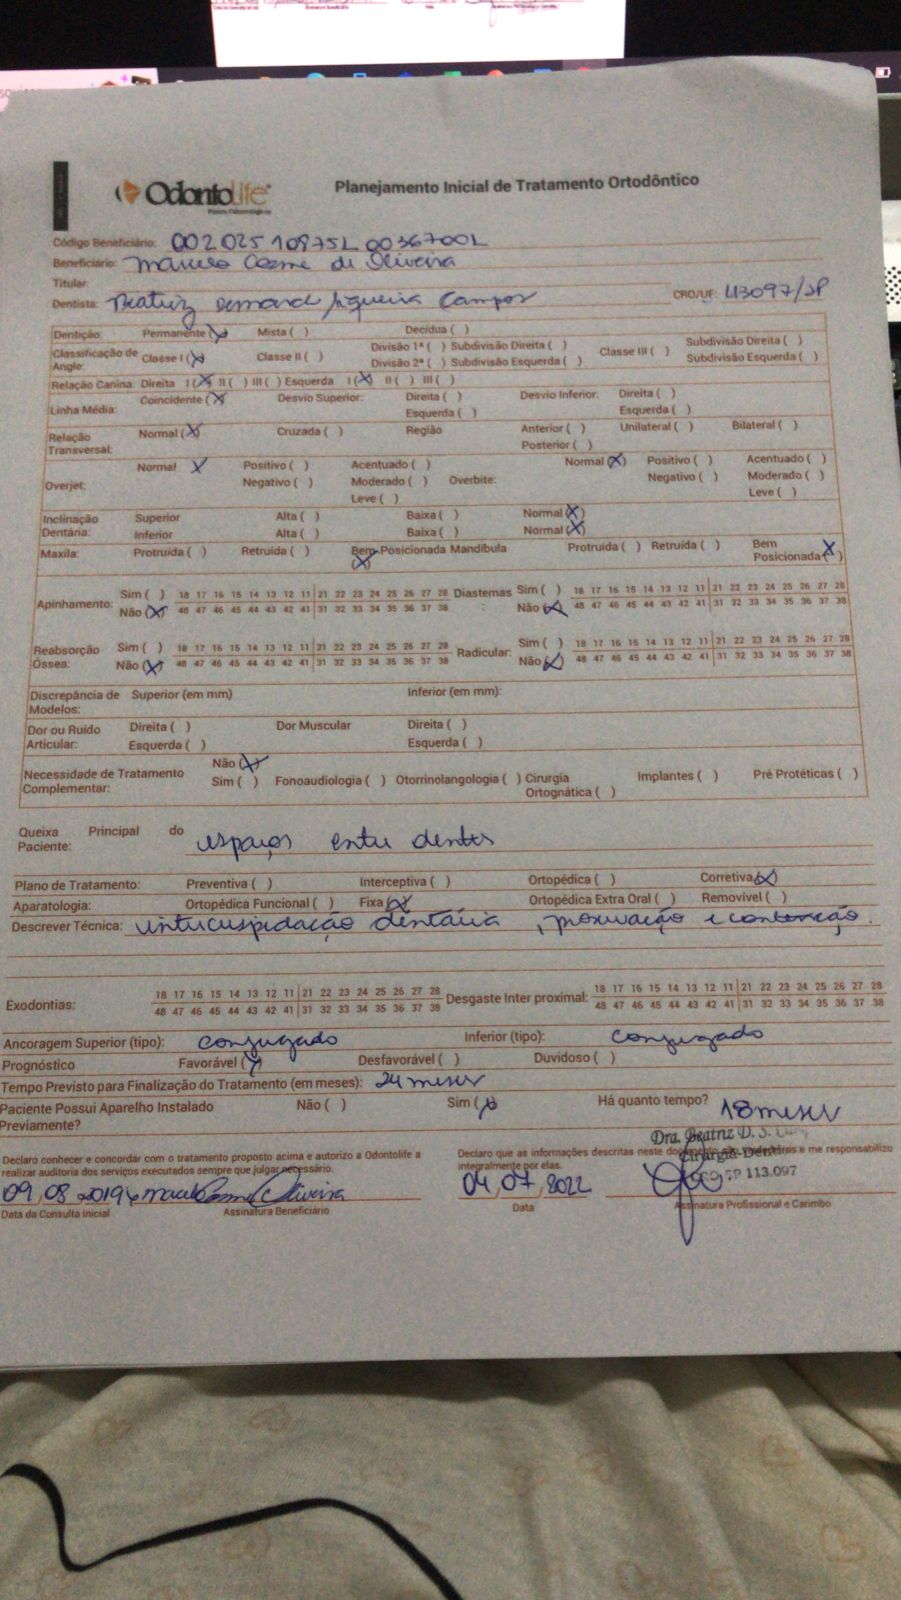 OdontoLife
Planos Odontológicos
Planejamento Inicial de Tratamento Ortodôntico
Código Beneficiário: 002025 10875L 0036700L
Beneficiário: Marcelo Cosme de Oliveira
Titular:
Dentista: Beatriz Figueira Campos CRO/UF: 113097/SP
Dentição: Permanente (x) Mista ( ) Decídua ( )
Classificação de Angle: Classe I (x) Classe II ( ) Divisão 1ª ( ) Subdivisão Direita ( ) Classe III ( ) Subdivisão Direita ( )
Divisão 2ª ( ) Subdivisão Esquerda ( ) Subdivisão Esquerda ( )
Relação Canina: Direita I (x) II ( ) III ( ) Esquerda I (x) II ( ) III ( )
Linha Média: Coincidente (x) Desvio Superior: Direita ( ) Desvio Inferior: Direita ( )
Esquerda ( ) Esquerda ( )
Relação Transversal: Normal (x) Cruzada ( ) Região Anterior ( ) Unilateral ( ) Bilateral ( )
Posterior ( )
Overjet: Normal x Positivo ( ) Acentuado ( ) Overbite: Normal (x) Positivo ( ) Acentuado ( )
Negativo ( ) Moderado ( ) Negativo ( ) Moderado ( )
Leve ( ) Leve ( )
Inclinação Dentária: Superior Alta ( ) Baixa ( ) Normal (x)
Inferior Alta ( ) Baixa ( ) Normal (x)
Maxila: Protruída ( ) Retruída ( ) Bem Posicionada (x) Mandíbula Protruída ( ) Retruída ( ) Bem Posicionada (x)
Apinhamento: Sim ( ) 18 17 16 15 14 13 12 11 21 22 23 24 25 26 27 28 Diastemas: Sim ( ) 18 17 16 15 14 13 12 11 21 22 23 24 25 26 27 28
Não (x) 48 47 46 45 44 43 42 41 31 32 33 34 35 36 37 38 Não (x) 48 47 46 45 44 43 42 41 31 32 33 34 35 36 37 38
Reabsorção Óssea: Sim ( ) 18 17 16 15 14 13 12 11 21 22 23 24 25 26 27 28 Radicular: Sim ( ) 18 17 16 15 14 13 12 11 21 22 23 24 25 26 27 28
Não (x) 48 47 46 45 44 43 42 41 31 32 33 34 35 36 37 38 Não (x) 48 47 46 45 44 43 42 41 31 32 33 34 35 36 37 38
Discrepância de Modelos: Superior (em mm) Inferior (em mm):
Dor ou Ruído Articular: Direita ( ) Dor Muscular Direita ( )
Esquerda ( ) Esquerda ( )
Necessidade de Tratamento Complementar: Não (x)
Sim ( ) Fonoaudiologia ( ) Otorrinolangologia ( ) Cirurgia Ortognática ( ) Implantes ( ) Pré Protéticas ( )
Queixa Principal do Paciente: espaços entre dentes
Plano de Tratamento: Preventiva ( ) Interceptiva ( ) Ortopédica ( ) Corretiva (x)
Aparatologia: Ortopédica Funcional ( ) Fixa (x) Ortopédica Extra Oral ( ) Removível ( )
Descrever Técnica: intercuspidação dentária, e contenção.
Exodontias: 18 17 16 15 14 13 12 11 21 22 23 24 25 26 27 28 Desgaste Inter proximal: 18 17 16 15 14 13 12 11 21 22 23 24 25 26 27 28
48 47 46 45 44 43 42 41 31 32 33 34 35 36 37 38 48 47 46 45 44 43 42 41 31 32 33 34 35 36 37 38
Ancoragem Superior (tipo): conjugado Inferior (tipo): conjugado
Prognóstico Favorável (x) Desfavorável ( ) Duvidoso ( )
Tempo Previsto para Finalização do Tratamento (em meses): 24 meses
Paciente Possui Aparelho Instalado Previamente? Não ( ) Sim (x) Há quanto tempo? 18 meses
Dra. Beatriz D. S.
Cirurgiã-Dentista
CRO-SP 113.097
Declaro conhecer e concordar com o tratamento proposto acima e autorizo a Odontolife a realizar auditoria dos serviços executados sempre que julgar necessário.
Declaro que as informações descritas neste documento são verdadeiras e me responsabilizo integralmente por elas.
09,08,2019 Marcelo Cosme Oliveira 04,07,2022
Data da Consulta Inicial Assinatura Beneficiário Data Assinatura Profissional e Carimbo